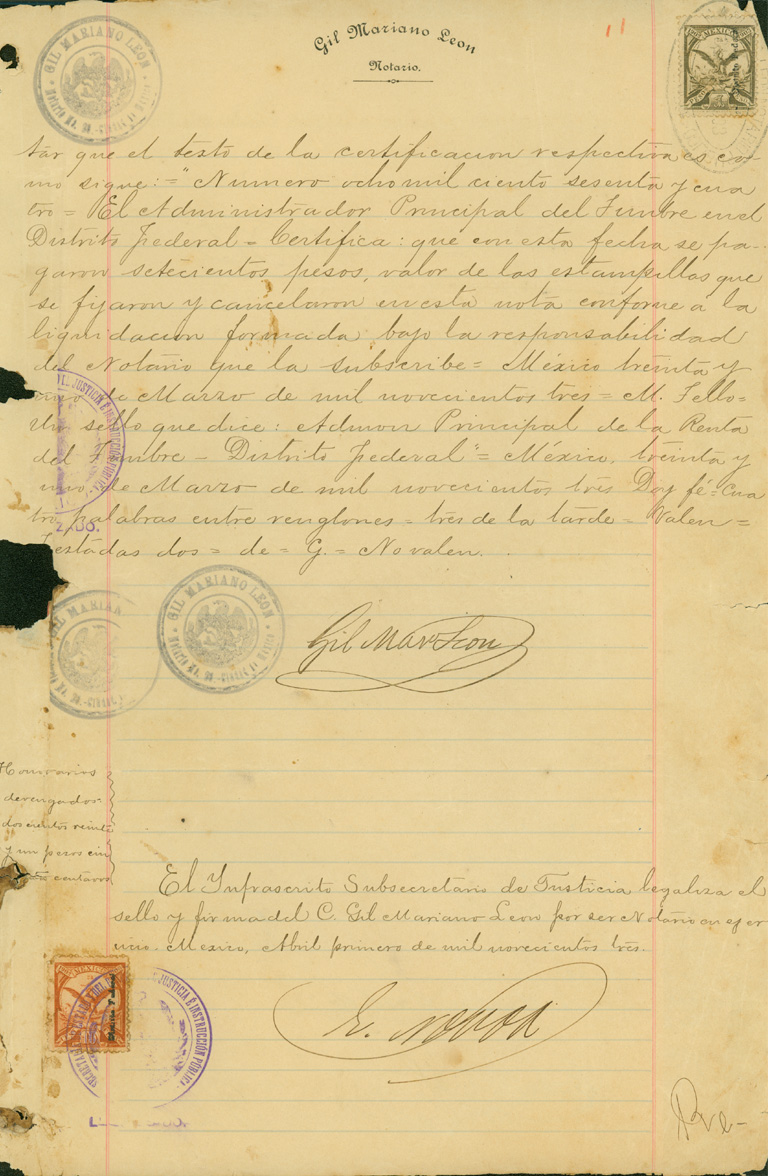 Gil Mariano Leon
Notario.
11
GIL MARIANO LEON
MEXICO
tar que el testo de la certificacion respectiva es co-
mo sigue: = "Numero ocho mil ciento sesenta y cua
tro = El Administrador Principal del Timbre en el
Distrito Federal = Certifica: que con esta fecha se pa-
garon setecientos pesos, valor de las estampillas que
se fijaron y cancelaron en esta nota conforme a la
liquidacion formada bajo la responsabilidad
del Notario que la subscribe = México treinta y
uno de Marzo de mil novecientos tres = M. Tello =
Un sello que dice: Admon Principal de la Renta
del Timbre - Distrito Federal" = México, treinta y
uno de Marzo de mil novecientos tres Doy fé = Cua
tro palabras entre renglones = tres de la tarde = Valen =
Testadas dos = de = G. = No valen.
JUSTICIA É INSTRUCCIÓN PÚBLICA
GIL MARIANO LEON
GIL MARIAN
Gil Mar Leon
Honorarios
devengados
doscientos veinte
y un pesos cin
centavos
El Infrascrito Subsecretario de Justicia legaliza el
sello y firma del C. Gil Mariano Leon por ser Notario en ejer
cicio. Mexico, Abril primero de mil novecientos tres.
E. Novoa
MEXICO
JUSTICIA É INSTRUCCIÓN PÚBLICA